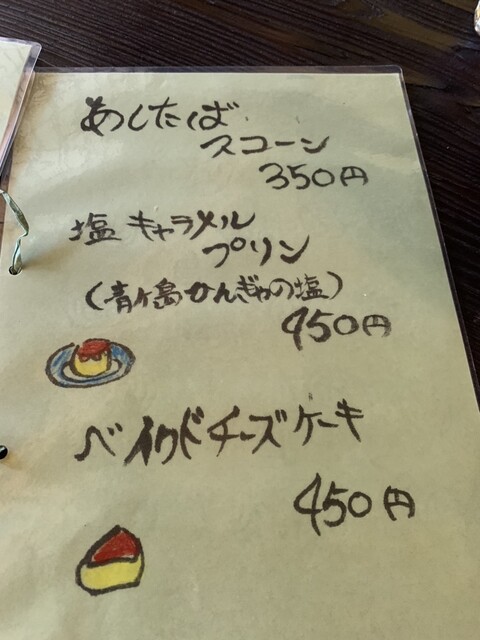 あしたば
スコーン
350円
塩キャラメル
プリン
(青ヶ島かんぎゃの塩)
450円
ベイクドチーズケーキ
450円